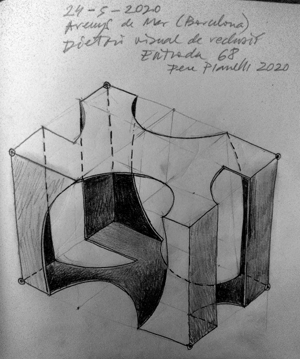 24-5-2020
Arenys de Mar (Barcelona)
Dietari visual de reclusió
Entrada 68
Pere Planelli 2020